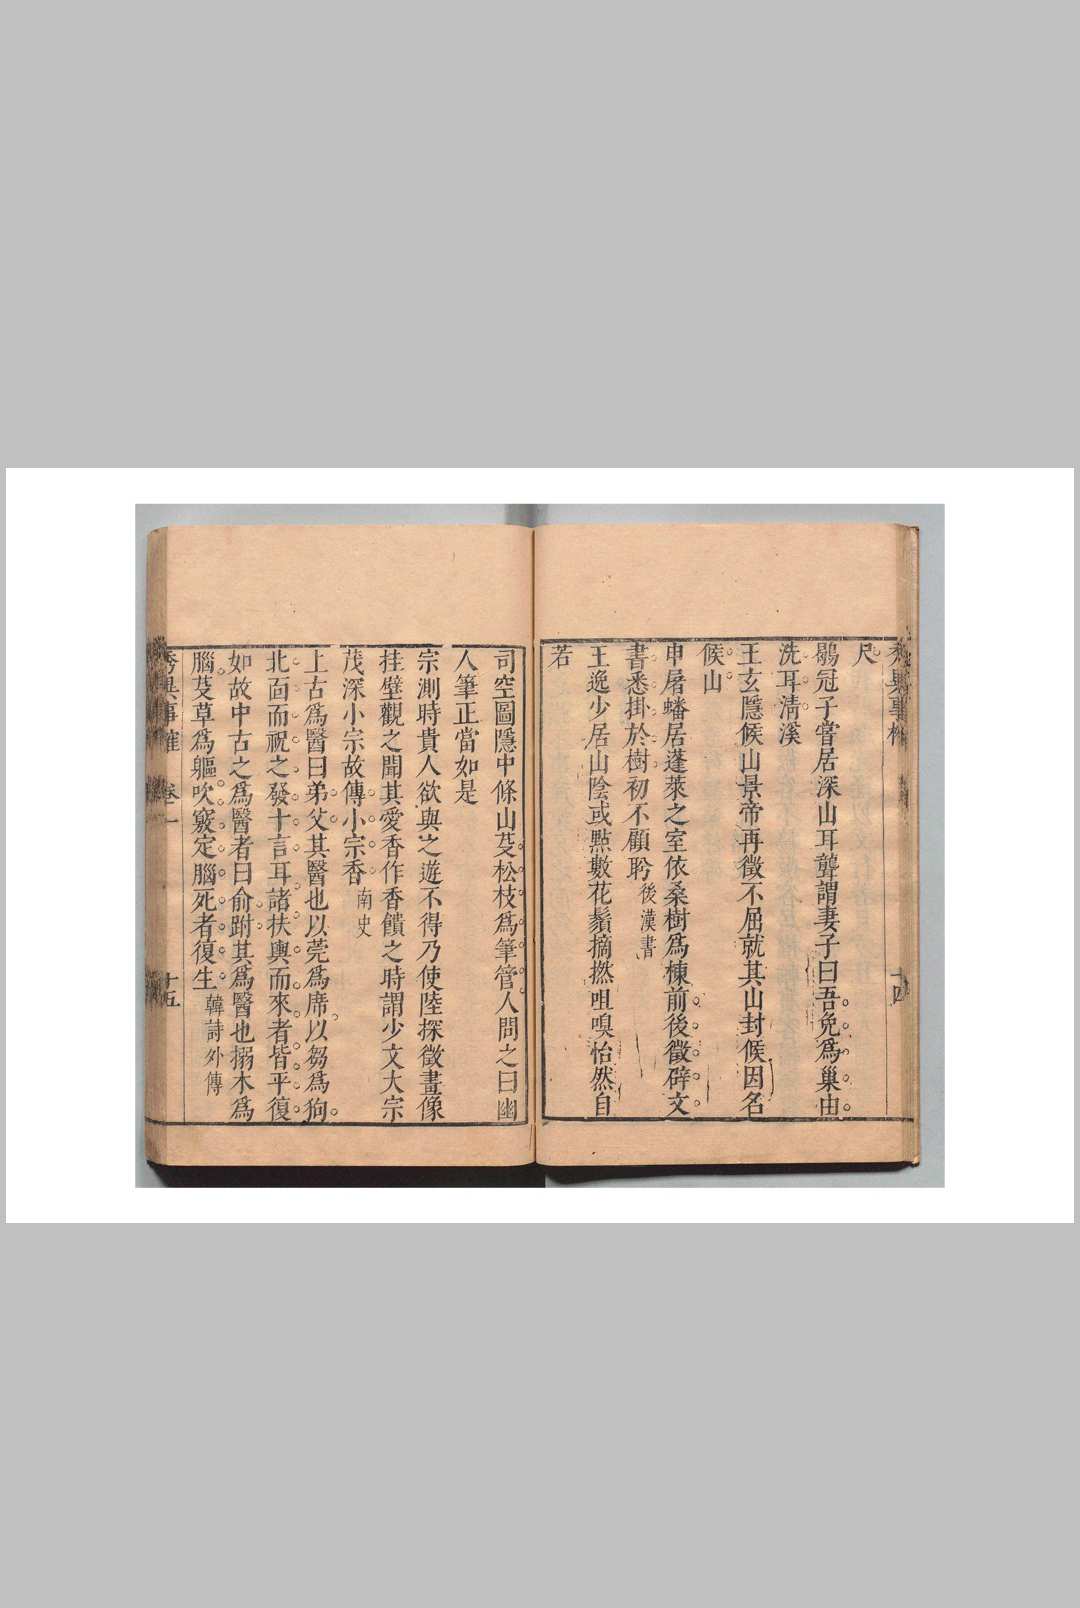 尺
鶡冠子嘗居深山耳聾謂妻子曰吾免爲巢由
洗耳清溪
王玄隱候山景帝再徵不屈就其山封候因名
候山
申屠蟠居蓬萊之室依桑樹爲棟前後徵辟文
書悉掛於樹初不顧聆後漢書
王逸少居山陰或㸃數花鬚摘撚咀嗅怡然自
若
司空圖隱中條山芟松枝爲筆管人問之曰幽
人筆正當如是
宗測時貴人欲與之遊不得乃使陸探微畫像
挂壁觀之聞其愛香作香饋之時謂少文大宗
茂深小宗故傳小宗香南史
上古爲醫曰弟父其醫也以莞爲席以芻爲狗
北面而祝之發十言耳諸扶輿而來者皆平復
如故中古之爲醫者曰俞跗其爲醫也搦木爲
腦芟草爲軀吹竅定腦死者復生韓詩外傳
卷一
十五